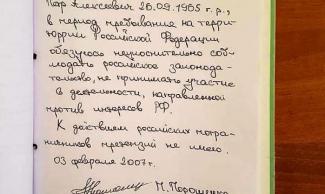 Алексеевич 26.09.1965 г.р.,
в период пребывания на терри-
тории Российской Федерации
обязуюсь неукоснительно соб-
людать российское законода-
тельство, не принимать участие
в деятельности, направленной
против интересов РФ.
К действиям российских погра-
ничников претензий не имею.
03 февраля 2007г.
П. Порошенко